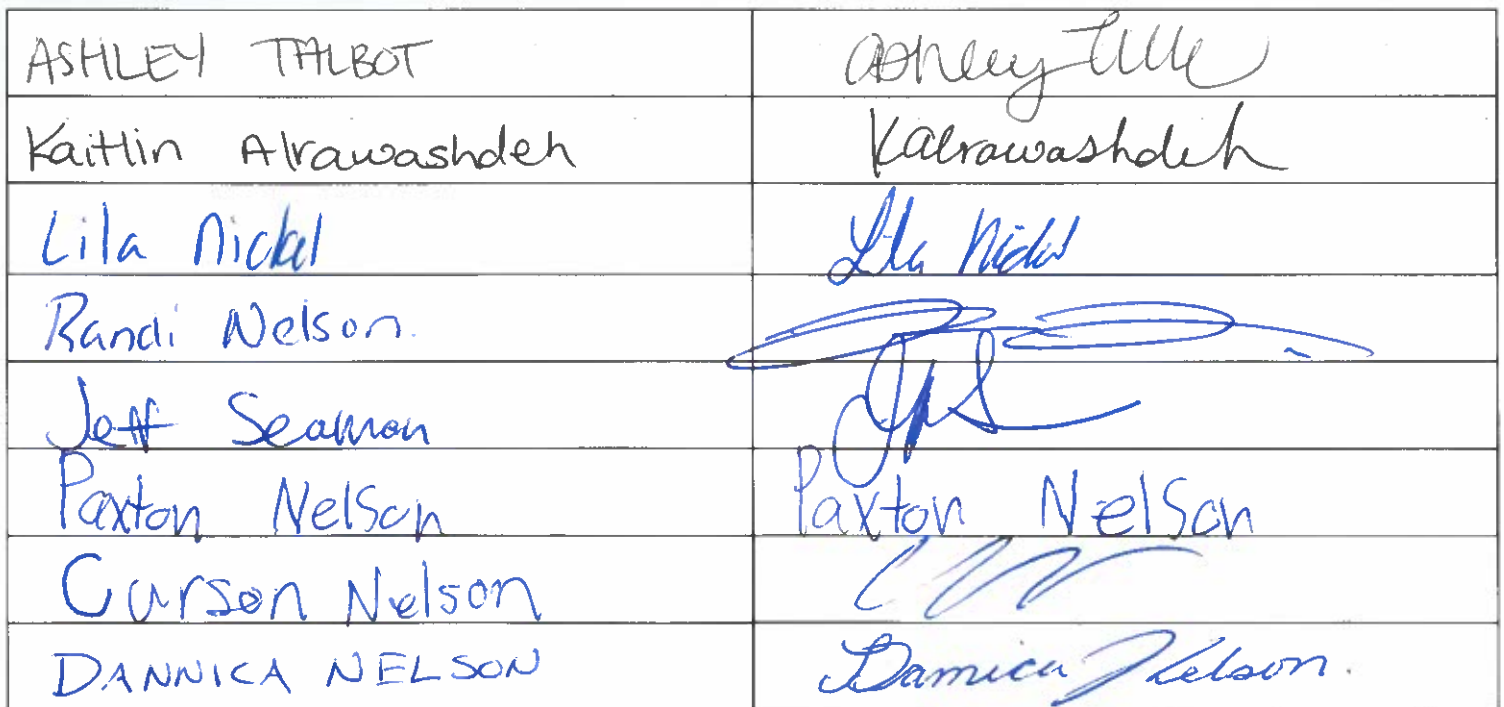 ASHLEY TALBOT Ashley
Kaitlin Alrawashdeh Kalrawashdeh
Lila Nickel Lila Nickel
Randi Nelson.
Jeff Seamon
Paxton Nelson Paxton Nelson
Carson Nelson
DANNICA NELSON Dannica Nelson.